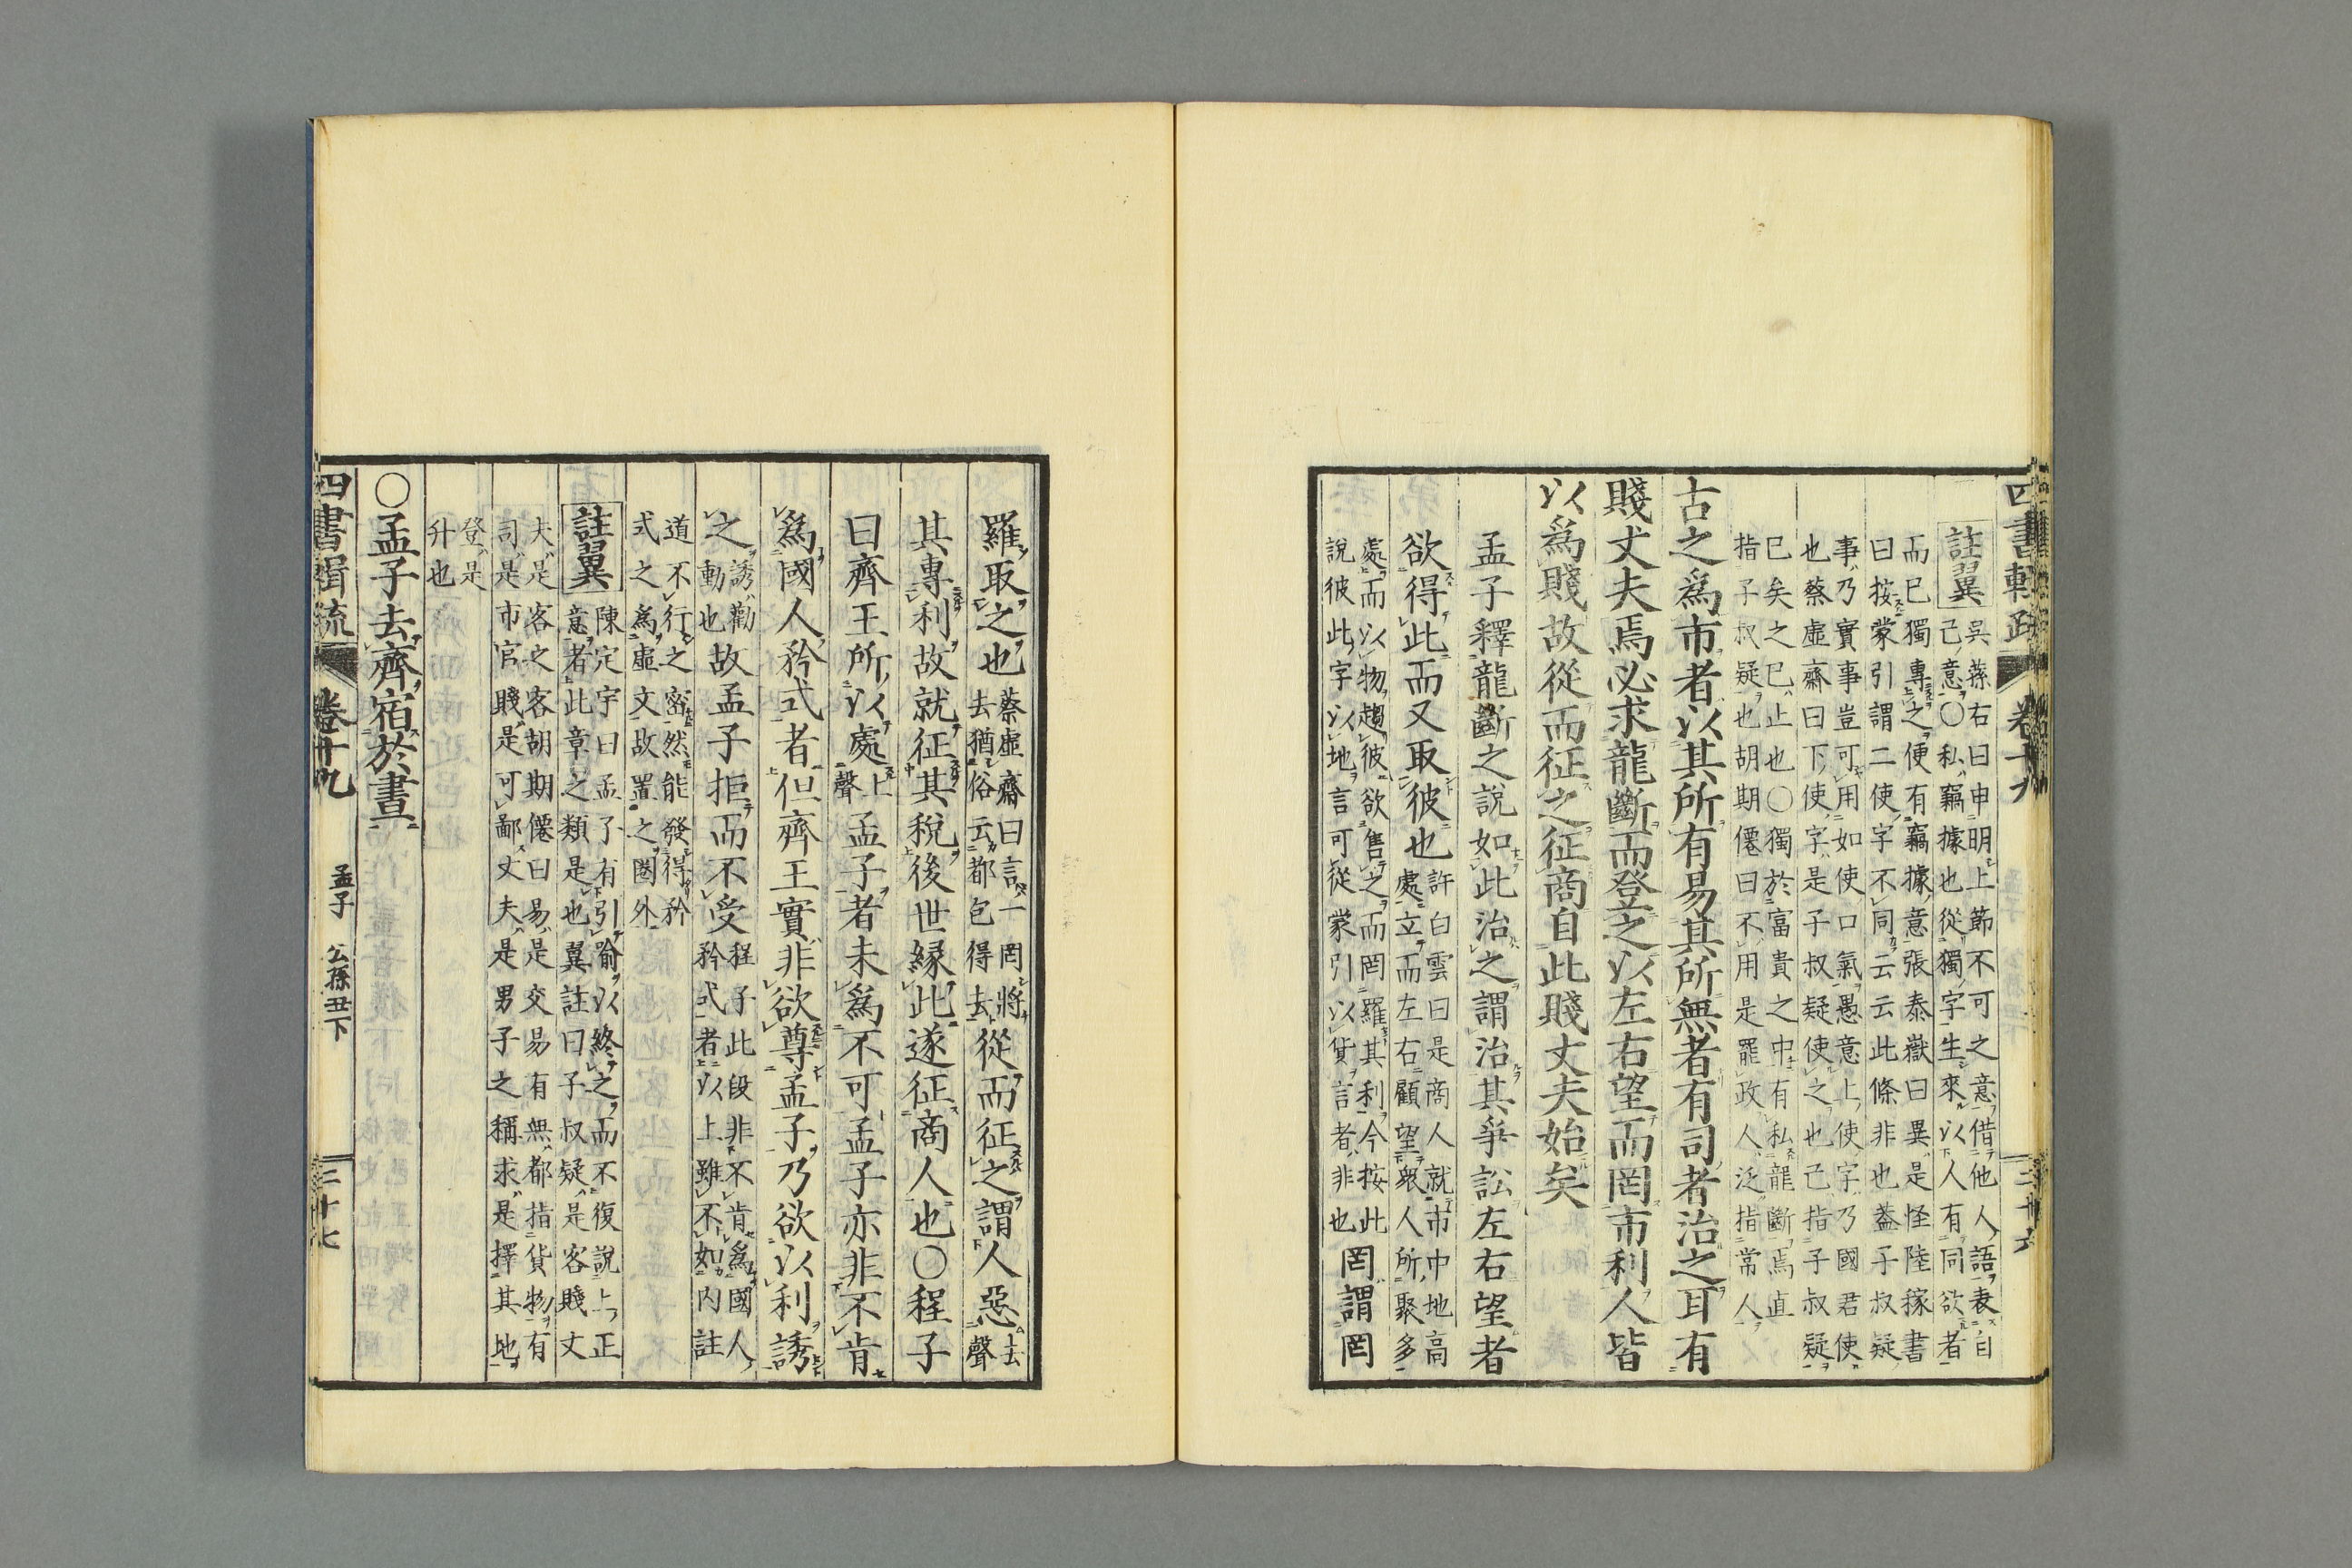 四書輯疏 卷十九 三十六
註翼 吳蓀右曰申明上節不可之意借他人語表自
己意〇私竊據也從獨字生來以人有同欲者
而已獨專之便有竊據意張泰嶽曰異是怪陸稼書
曰按蒙引謂二使字不同云云此條非也蓋子叔疑
事乃實事豈可用如使口氣愚意上使字乃國君使
也蔡虛齋曰下使字是子叔疑使之也己指子叔疑
已矣之已止也〇獨於富貴之中有私龍斷焉直
指子叔疑也胡期僊曰不用是罷政人泛指常人
古之爲市者以其所有易其所無者有司者治之耳有
賤丈夫焉必求龍斷而登之以左右望而罔市利人皆
以爲賤故從而征之征商自此賤丈夫始矣
孟子釋龍斷之說如此治之謂治其爭訟左右望者
欲得此而又取彼也
許白雲曰是商人就市中地高
處立而左右顧望衆人所聚多
處而以物趨彼欲售之而罔羅其利今按此
說彼此字以地言可從蒙引以貨言者非也
罔謂罔
羅取之也
蔡虛齋曰言一罔將
去猶俗云都包得去
從而征之謂人惡去聲
其專利故就征其稅後世緣此遂征商人也〇程子
曰齊王所以處上聲孟子者未爲不可孟子亦非不肯
爲國人矜式者但齊王實非欲尊孟子乃欲以利誘
之誘勸動也故孟子拒而不受
程子此段非不肯爲國人
矜式者以上雖不如內註
道不行之密然能發得矜
式之爲虛文故置之圈外
註翼 陳定宇曰孟子有引喻以終之而不復說上正
意者此章之類是也翼註曰子叔疑是客賤丈
夫是客之客胡期僊曰易是交易有無都指貨物有
司是市官賤是可鄙丈夫是男子之稱求是擇其地
登是
升也
〇孟子去齊宿於晝
四書輯疏 卷十九 孟子 公孫丑下 三十七